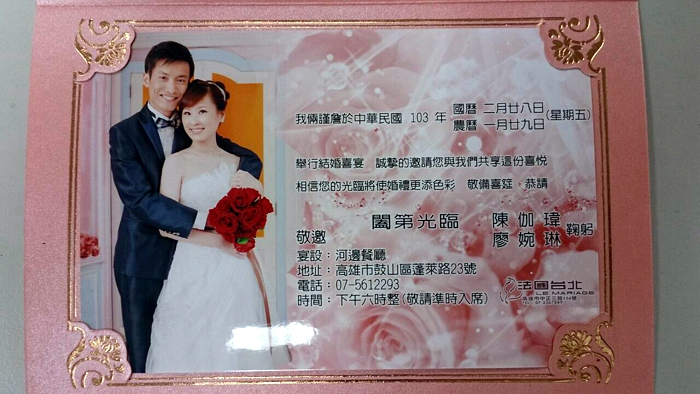 我倆謹詹於中華民國 103 年 國曆 二月廿八日 農曆 一月廿九日 (星期五)
舉行結婚喜宴 誠摯的邀請您與我們共享這份喜悅
相信您的光臨將使婚禮更添色彩 敬備喜筵 恭請
闔第光臨 陳伽瑋 廖婉琳 鞠躬
敬邀
宴設：河邊餐廳
地址：高雄市鼓山區蓬萊路23號
電話：07-5612293
時間：下午六時整(敬請準時入席)
法國台北
LE MARIAGE